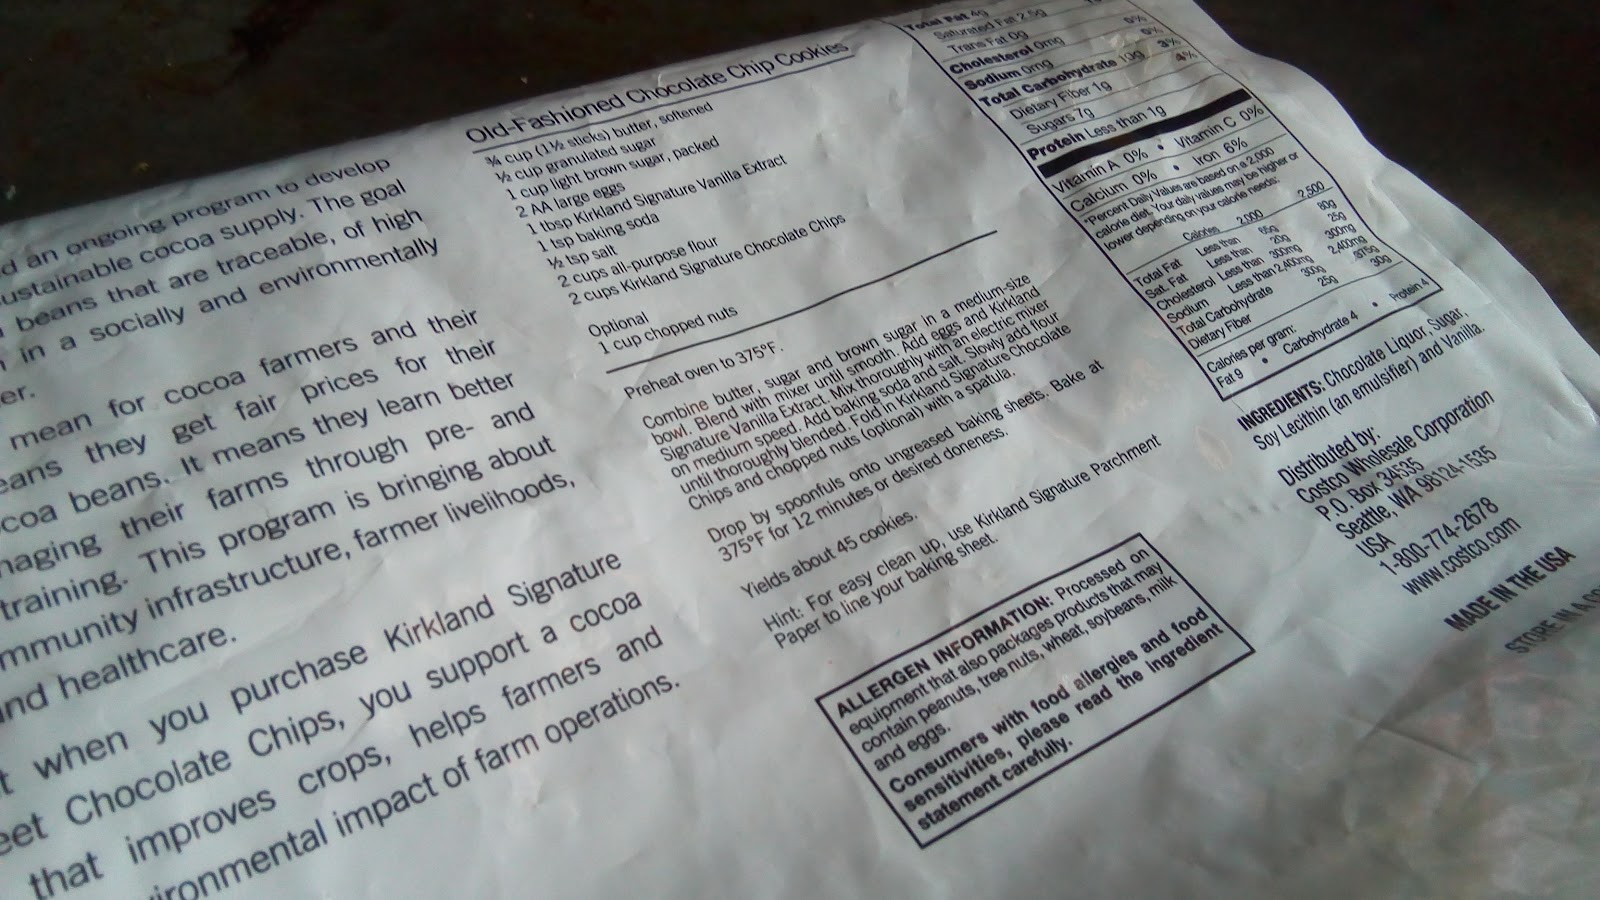 d an ongoing program to develop
ustainable cocoa supply. The goal
beans that are traceable, of high
in a socially and environmentally
er.
mean for cocoa farmers and their
eans they get fair prices for their
coa beans. It means they learn better
naging their farms through pre- and
training. This program is bringing about
mmunity infrastructure, farmer livelihoods,
nd healthcare.
t when you purchase Kirkland Signature
eet Chocolate Chips, you support a cocoa
that improves crops, helps farmers and
vironmental impact of farm operations.
Old-Fashioned Chocolate Chip Cookies
¾ cup (1½ sticks) butter, softened
½ cup granulated sugar
1 cup light brown sugar, packed
2 AA large eggs
1 tbsp Kirkland Signature Vanilla Extract
1 tsp baking soda
½ tsp salt
2 cups all-purpose flour
2 cups Kirkland Signature Chocolate Chips
Optional
1 cup chopped nuts
Preheat oven to 375°F.
Combine butter, sugar and brown sugar in a medium-size
bowl. Blend with mixer until smooth. Add eggs and Kirkland
Signature Vanilla Extract. Mix thoroughly with an electric mixer
on medium speed. Add baking soda and salt. Slowly add flour
until thoroughly blended. Fold in Kirkland Signature Chocolate
Chips and chopped nuts (optional) with a spatula.
Drop by spoonfuls onto ungreased baking sheets. Bake at
375°F for 12 minutes or desired doneness.
Yields about 45 cookies.
Hint: For easy clean up, use Kirkland Signature Parchment
Paper to line your baking sheet.
ALLERGEN INFORMATION: Processed on
equipment that also packages products that may
contain peanuts, tree nuts, wheat, soybeans, milk
and eggs.
Consumers with food allergies and food
sensitivities, please read the ingredient
statement carefully.
Total Fat 4g
Saturated Fat 2.5g
Trans Fat 0g
Cholesterol 0mg
Sodium 0mg
Total Carbohydrate 10g 3%
Dietary Fiber 1g 4%
Sugars 7g
Protein Less than 1g
Vitamin A 0% • Vitamin C 0%
Calcium 0% • Iron 6%
*Percent Daily Values are based on a 2,000
calorie diet. Your daily values may be higher or
lower depending on your calorie needs:
Calories 2,000 2,500
Total Fat Less than 65g 80g
Sat. Fat Less than 20g 25g
Cholesterol Less than 300mg 300mg
Sodium Less than 2,400mg 2,400mg
Total Carbohydrate 300g 375g
Dietary Fiber 25g 30g
Calories per gram:
Fat 9 • Carbohydrate 4 • Protein 4
INGREDIENTS: Chocolate Liquor, Sugar,
Soy Lecithin (an emulsifier) and Vanilla.
Distributed by:
Costco Wholesale Corporation
P.O. Box 34535
Seattle, WA 98124-1535
USA
1-800-774-2678
www.costco.com
MADE IN THE USA
STORE IN A